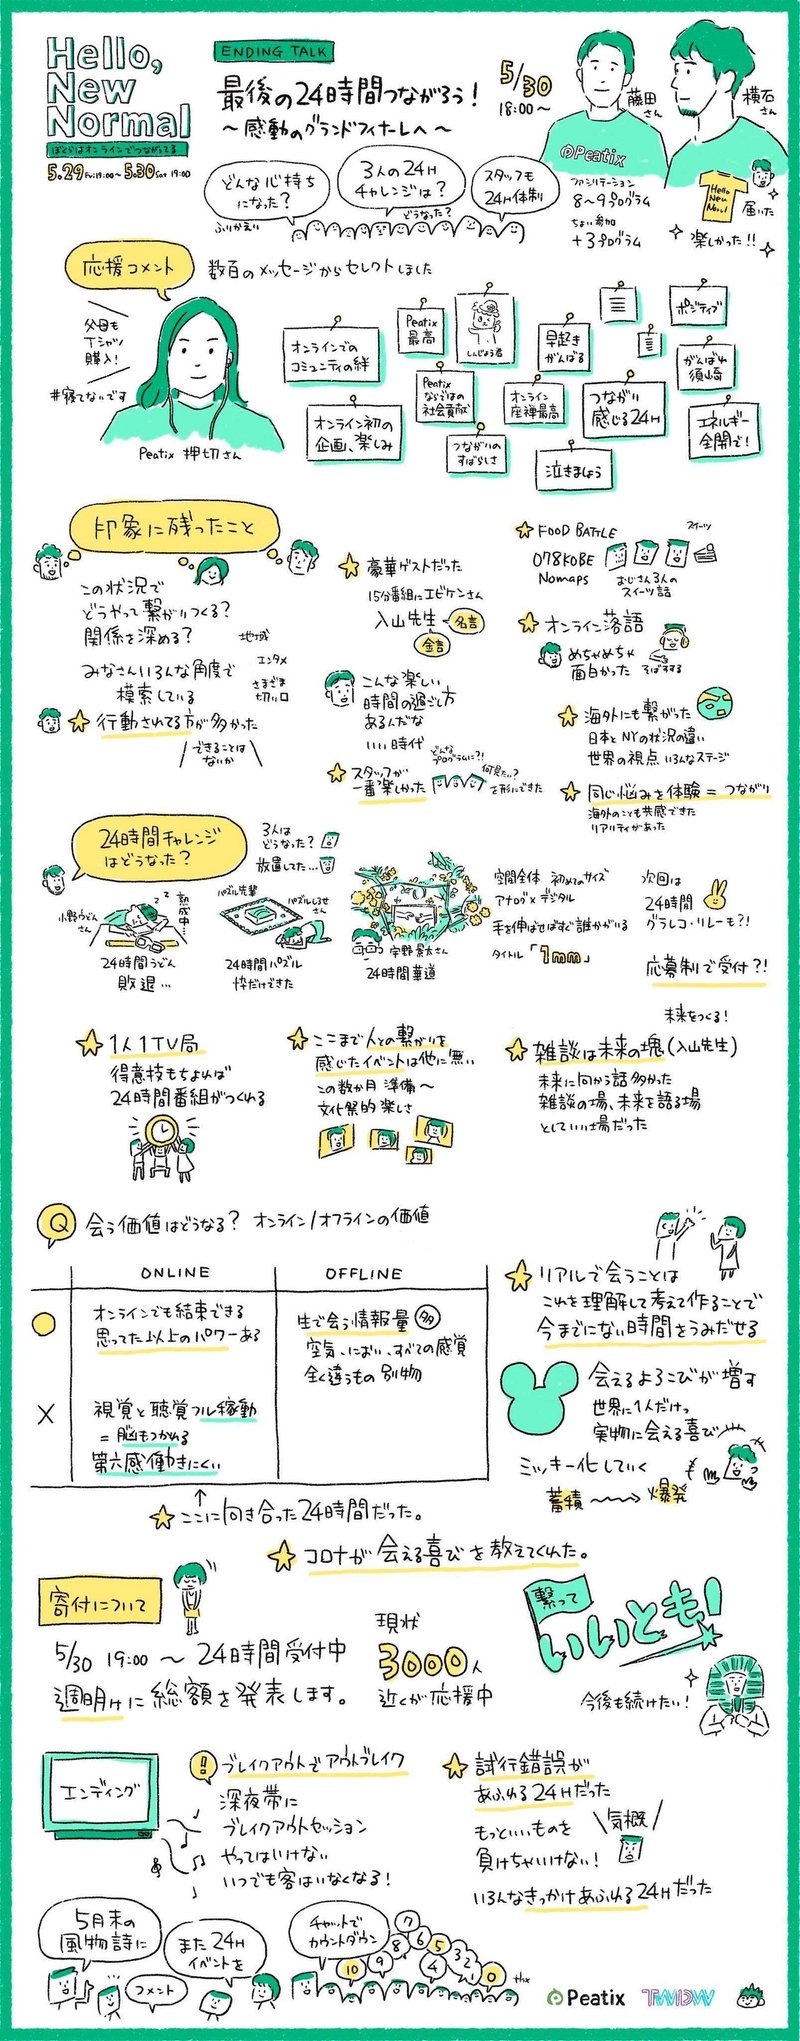 Hello,
New
Normal
ぼくらはオンラインでつながってる
5.29 Fri 19:00~5.30 Sat 19:00
ENDING TALK
最後の24時間つながろう!
~感動のグランドフィナーレへ~
5/30
18:00~
藤田さん
横石さん
Peatix
どんな心持ちになった?
ふりかえり
3人の24Hチャレンジは?
どうなった?
スタッフも24H体制
ファシリテーション
8~9プログラム
ちょい参加
+3プログラム
Hello New Normal
届いた
楽しかった!!
応援コメント
数百のメッセージからセレクトしました
父母も
Tシャツ
購入!
#寝てないです
Peatix 押切さん
オンラインでの
コミュニティの絆
Peatix
最高
しんじょう君
早起き
がんばる
ポジティブ
がんばれ
須崎
オンライン初の
企画、楽しみ
Peatix
ならではの
社会貢献
つながりの
すばらしさ
オンライン
座禅最高
つながり
感じる24H
泣きましょう
エネルギー
全開で!
印象に残ったこと
この状況で
どうやって繋がりつくる?
関係を深める?
みなさんいろんな角度で
模索している
地域
エンタメ
さまざま
切り口
行動されてる方が多かった
できることは
ないか
豪華ゲストだった
15分番組にエビケンさん
入山先生
名言
金言
こんな楽しい
時間の過ごし方
あるんだな
いい時代
スタッフが
一番楽しかった
どんな
プログラムに?!
何見たい?
を形にできた
FOOD BATTLE
078KOBE
Nomaps
スイーツ
おじさん3人の
スイーツ話
オンライン落語
めちゃめちゃ
面白かった
そばすする
海外にも繋がった
日本とNYの状況の違い
世界の視点 いろんなステージ
同じ悩みを体験=つながり
海外のことも共感できた
リアリティがあった
24時間チャレンジ
はどうなった?
3人は
どうなった?
放置してた…
小野うどん
さん
熟成中…
24時間うどん
敗退…
パズル先輩
パズルしるせ
さん
24時間パズル
枠だけできた
宇野景太さん
24時間華道
空間全体 初めてのサイズ
アナログ×デジタル
手を伸ばせばすぐ誰かがいる
タイトル「1mm」
次回は
24時間
グラレコ・リレーも?!
応募制で受付?!
1人1TV局
得意技もちよれば
24時間番組がつくれる
ここまで人との繋がりを
感じたイベントは他に無い
この数か月 準備~
文化祭的楽しさ
未来をつくる!
雑談は未来の塊(入山先生)
未来に向かう話多かった
雑談の場、未来を語る場
としていい場だった
Q 会う価値はどうなる? オンライン/オフラインの価値
ONLINE
OFFLINE
オンラインでも結束できる
思ってた以上のパワーある
生で会う情報量 多
空気、におい、すべての感覚
全く違うもの 別物
×
視覚と聴覚フル稼動
=脳もつかれる
第六感働きにくい
ここに向き合った24時間だった。
リアルで会うことは
これを理解して考えて作ることで
今までにない時間をうみだせる
会えるよろこびが増す
世界に1人だけっ
実物に会える喜び
ミッキー化していく
蓄積
爆発
コロナが会える喜びを教えてくれた。
寄付について
5/30 19:00~24時間受付中
週明けに総額を発表します。
現状
3000人
近くが応援中
繋って
いいとも!
今後も続けたい!
エンディング
!!
ブレイクアウトでアウトブレイク
深夜帯に
ブレイクアウトセッション
やってはいけない
いつでも客はいなくなる!
試行錯誤が
あふれる24Hだった
もっといいものを
負けちゃいけない!
気概
いろんなきっかけあふれる24Hだった
5月末の
風物詩に
コメント
また24H
イベントを
チャットで
カウントダウン
10
9
8
7
6
5
4
3
2
1
0
thx
Peatix
TWDW